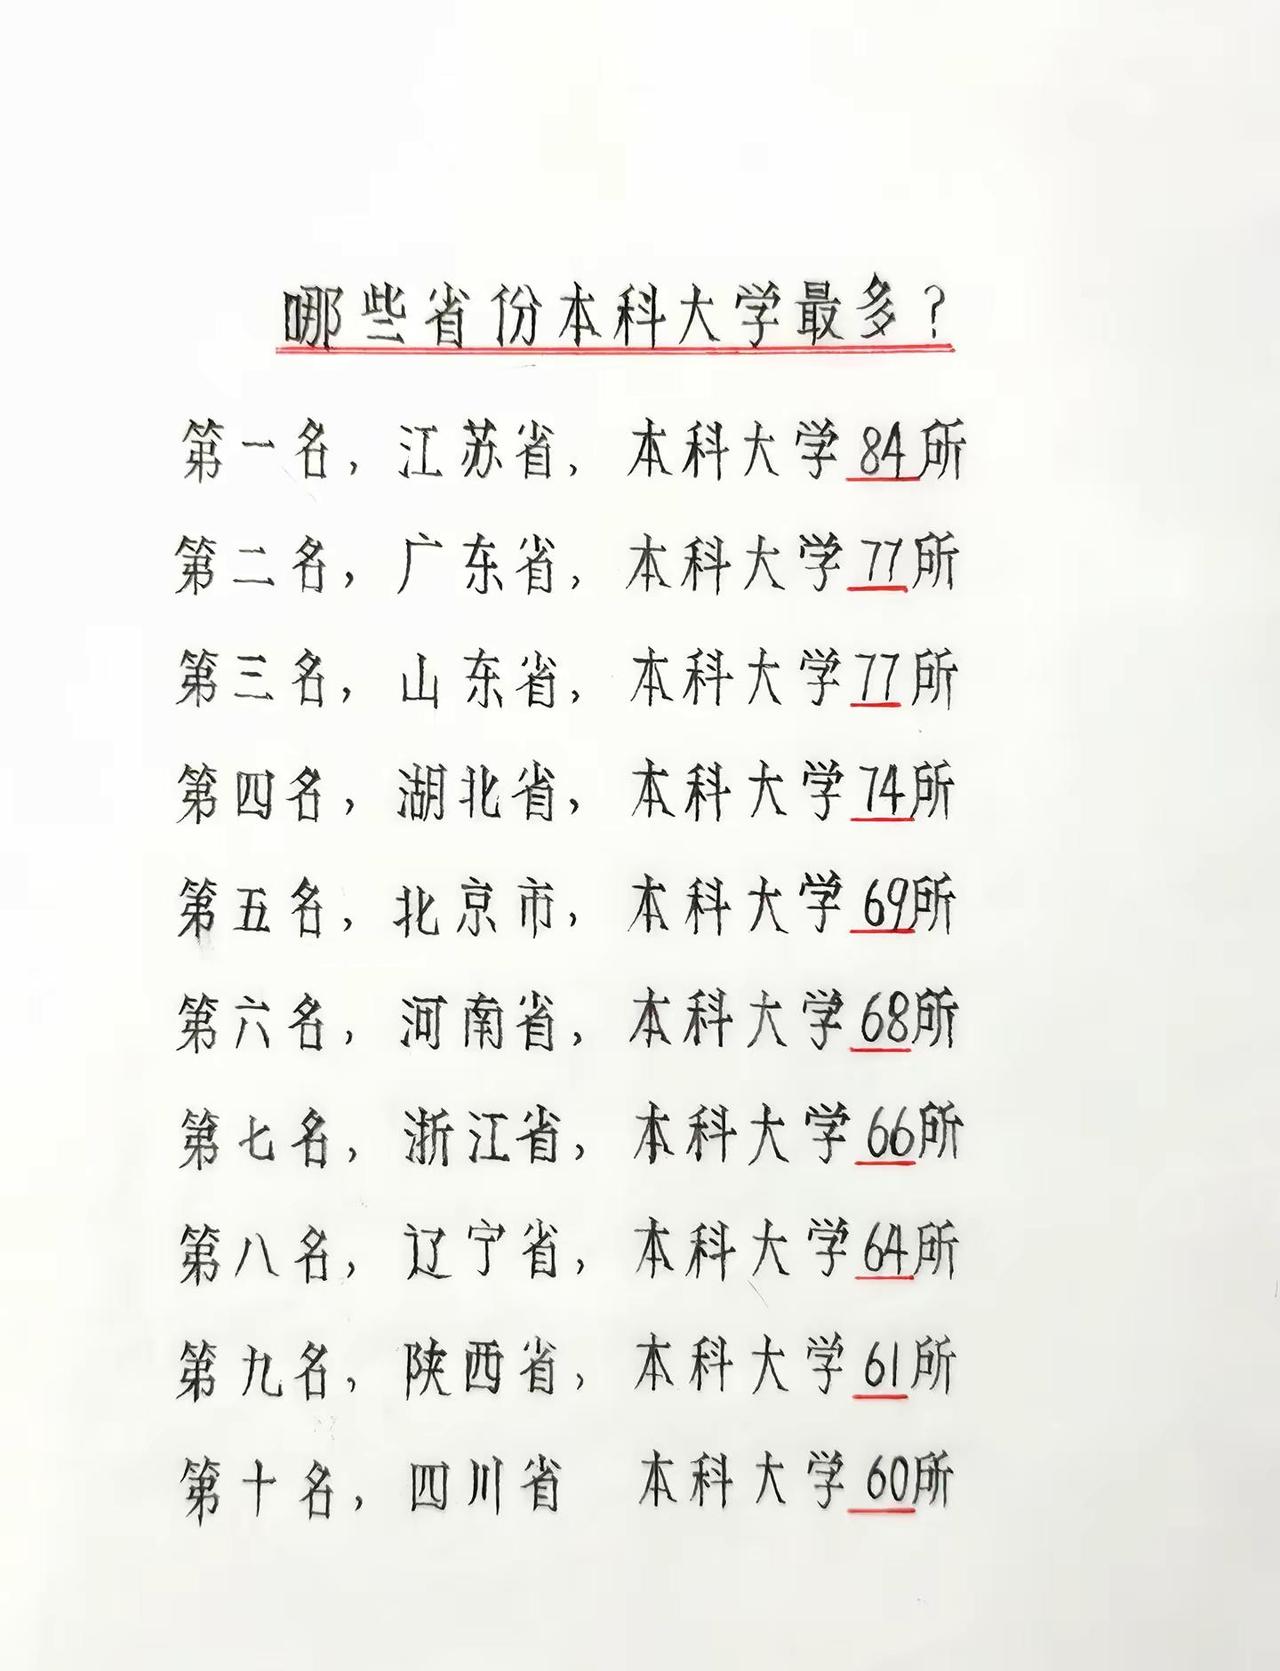 哪些省份本科大学最多？
第一名，江苏省，本科大学84所
第二名，广东省，本科大学77所
第三名，山东省，本科大学77所
第四名，湖北省，本科大学74所
第五名，北京市，本科大学69所
第六名，河南省，本科大学68所
第七名，浙江省，本科大学66所
第八名，辽宁省，本科大学64所
第九名，陕西省，本科大学61所
第十名，四川省 本科大学60所